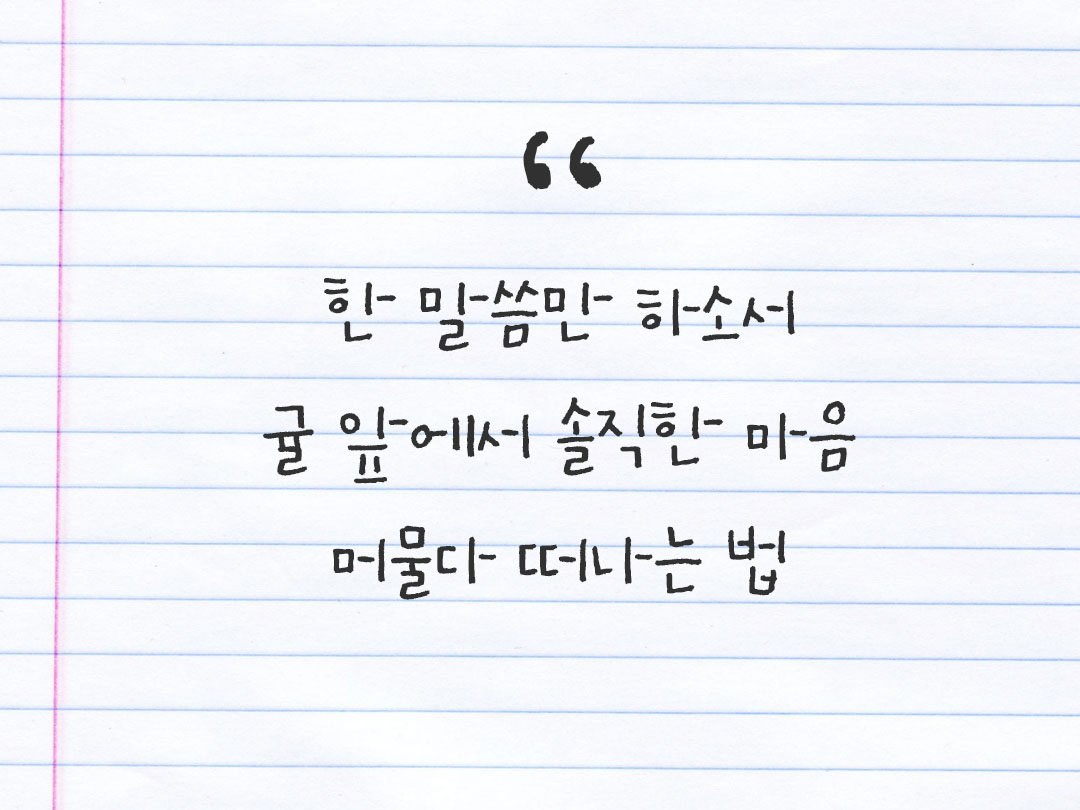 “
한 말씀만 하소서
귤 앞에서 솔직한 마음
머물다 떠나는 법